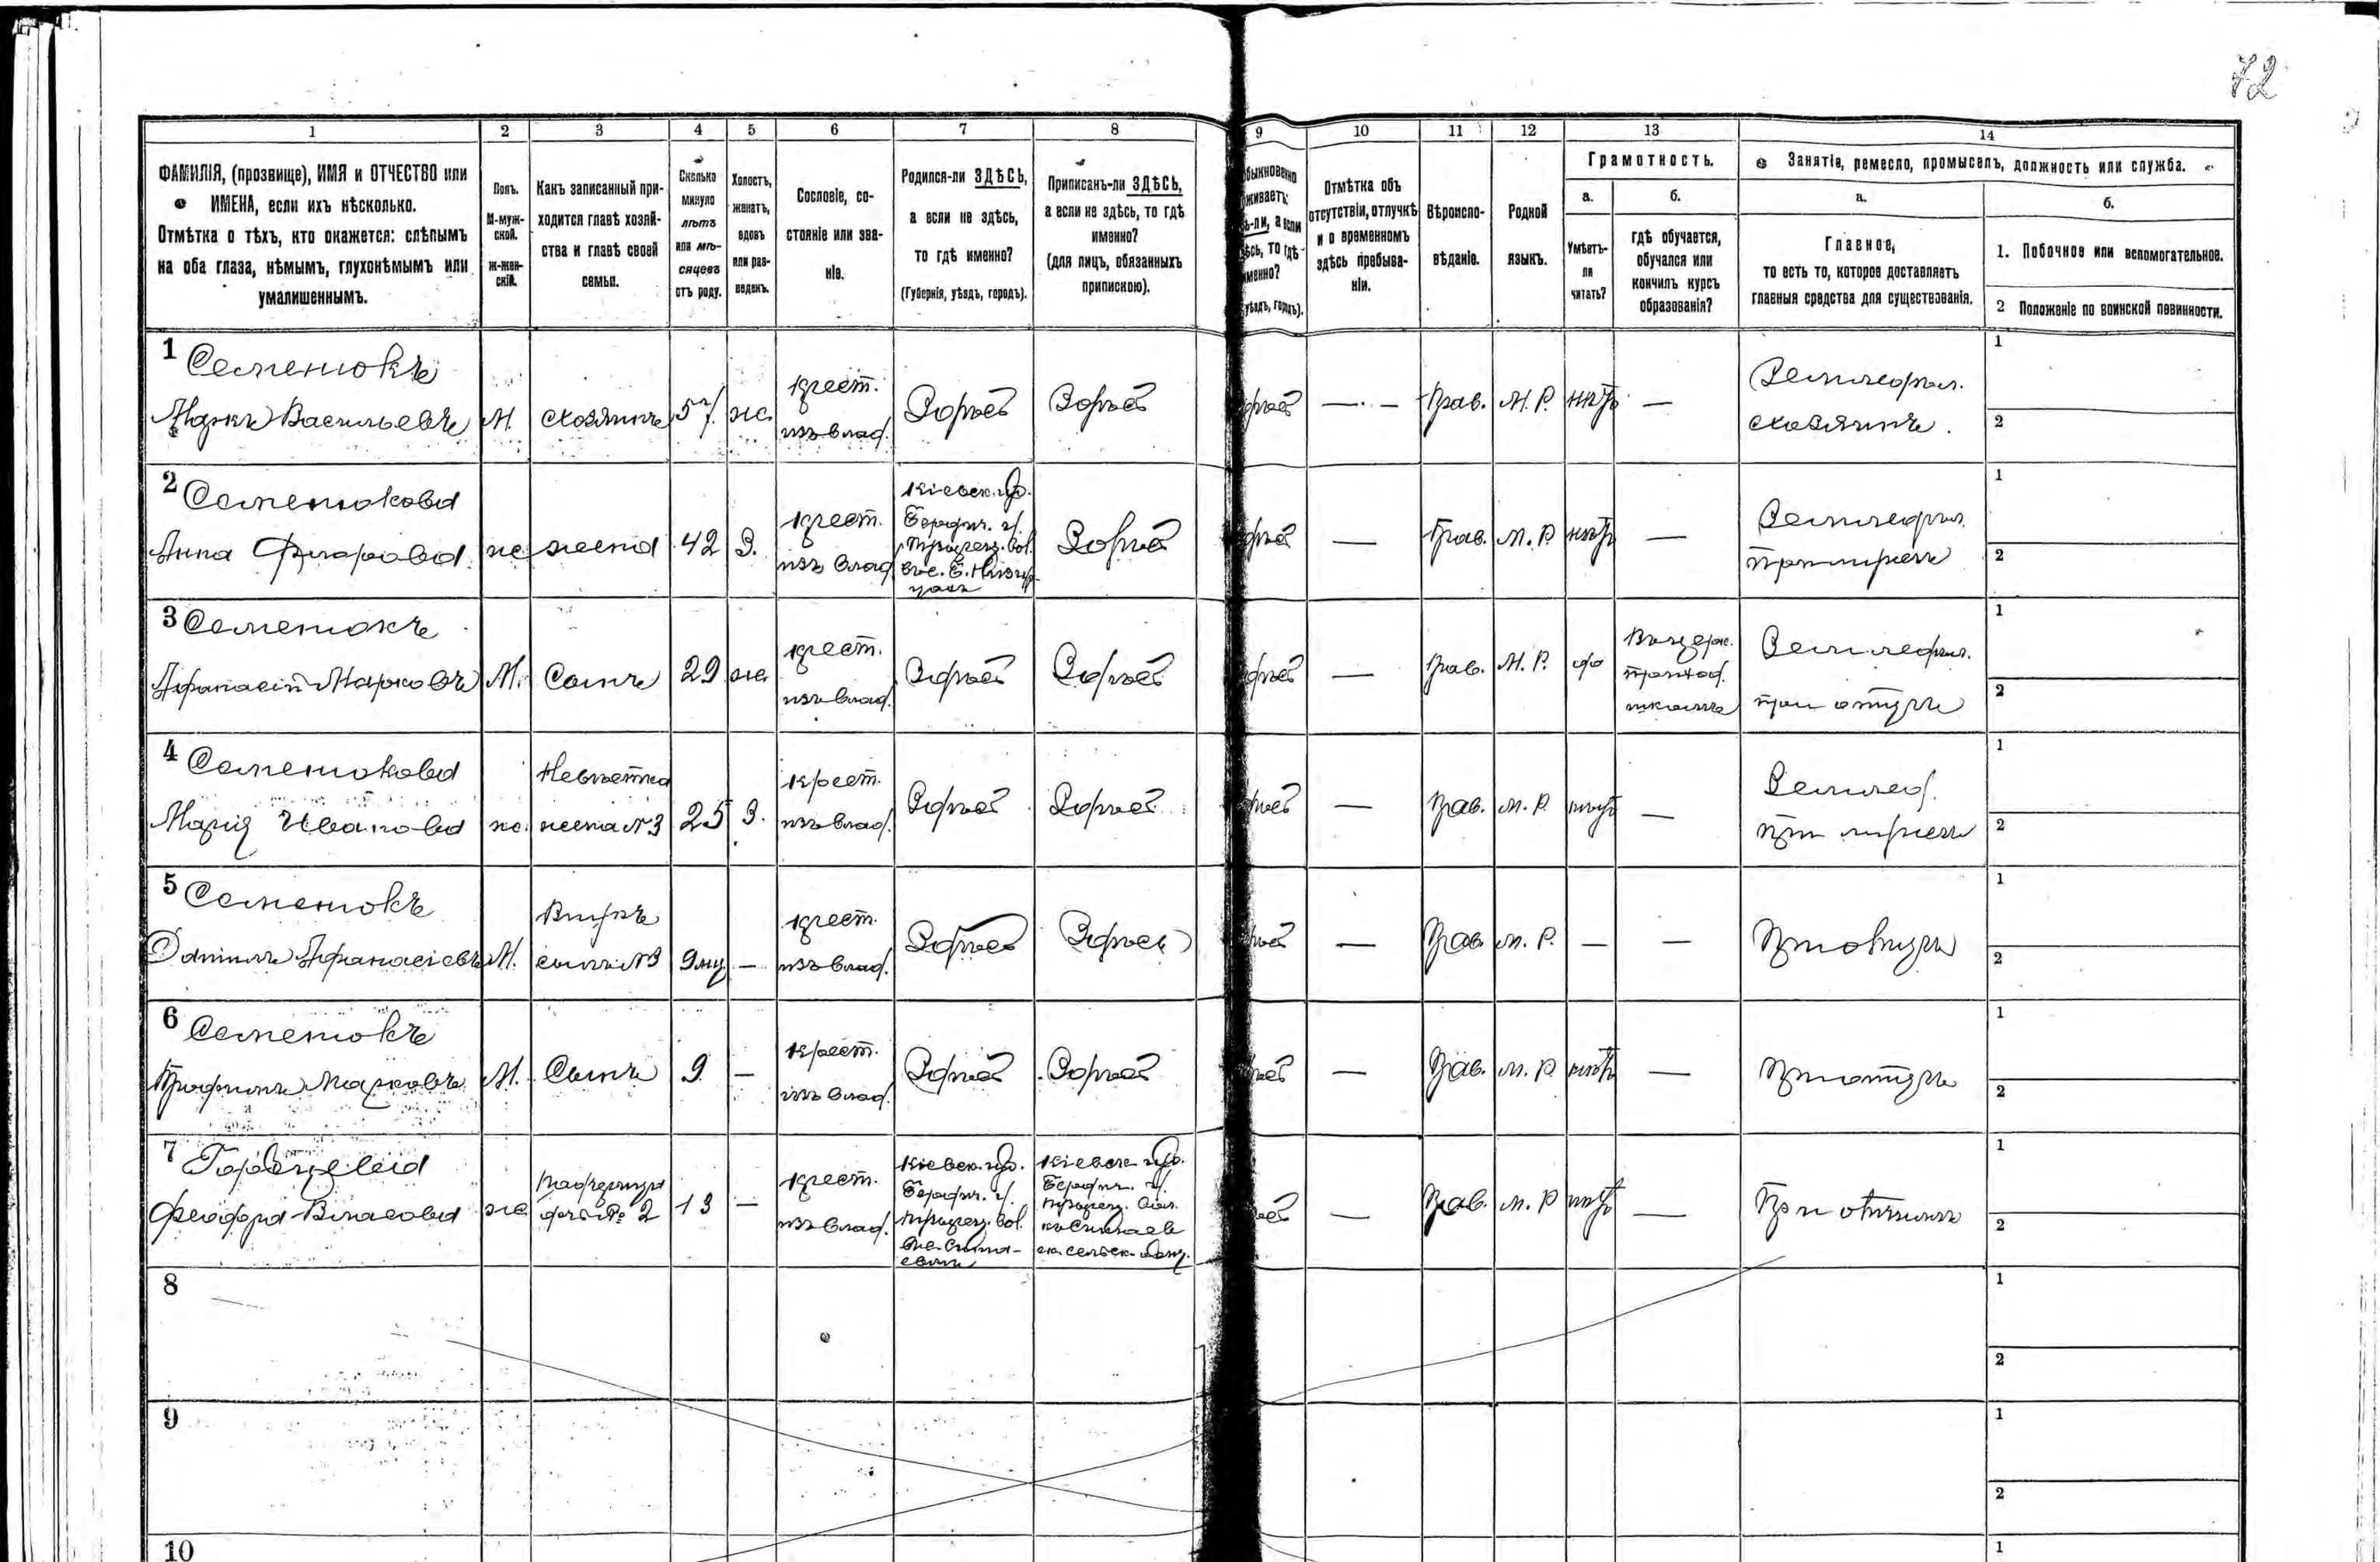 72
1
2
3
4
5
6
7
8
9
10
11
12
13
14
ФАМИЛІЯ, (прозвище), ИМЯ и ОТЧЕСТВО или
ИМЕНА, если ихъ нѣсколько.
Отмѣтка о тѣхъ, кто окажется: слѣпымъ
на оба глаза, нѣмымъ, глухонѣмымъ или
умалишеннымъ.
Полъ.
М-муж-
ской.
ж-жен-
скій.
Какъ записанный при-
ходится главѣ хозяй-
ства и главѣ своей
семьи.
Сколько
минуло
лѣтъ
или мѣ-
сяцевъ
отъ роду.
Холостъ,
женатъ,
вдовъ
или раз-
веденъ.
Сословіе, со-
стояніе или зва-
ніе.
Родился-ли ЗДѢСЬ,
а если не здѣсь,
то гдѣ именно?
(Губернія, уѣздъ, городъ).
Приписанъ-ли ЗДѢСЬ,
а если не здѣсь, то гдѣ
именно?
(для лицъ, обязанныхъ
припискою).
быкновенно
живаетъ:
ь-ли, а если
ѣсь, то гдѣ
именно?
уѣздъ, городъ).
Отмѣтка объ
отсутствіи, отлучкѣ
и о временномъ
здѣсь пребыва-
ніи.
Вѣроиспо-
вѣданіе.
Родной
языкъ.
Грамотность.
а.
Умѣетъ-
ли
читать?
б.
гдѣ обучается,
обучался или
кончилъ курсъ
образованія?
Занятіе, ремесло, промыселъ, должность или служба.
а.
Главное,
то есть то, которое доставляетъ
главныя средства для существованія.
б.
1. Побочное или вспомогательное.
2 Положеніе по воинской повинности.
1 Семенюкъ
Маркъ Васильевъ М. хозяинъ 57 ж. крест. изъ влад. Здѣсь Здѣсь здѣсь — Прав. М. Р. нѣтъ — Земледѣл. хозяинъ. 1 2
2 Семенюкова
Анна жена 42 З. крест. изъ влад. Кіевск. губ. Бердич. у. Здѣсь здѣсь — Прав. М. Р. нѣтъ — Земледѣл. при мужѣ 1 2
3 Семенюкъ
Афанасій Марковъ М. Сынъ 29 ж. крест. изъ влад. Здѣсь Здѣсь здѣсь — Прав. М. Р. да школѣ Земледѣл. при отцѣ 1 2
4 Семенюкова
Марія Иванова ж. Невѣстка жена №3 25 З. крест. изъ влад. Здѣсь Здѣсь здѣсь — Прав. М. Р. нѣтъ — Землед. при мужѣ 1 2
5 Семенюкъ
Афанасіевъ М. Внукъ сынъ №3 9 мц — крест. изъ влад. Здѣсь Здѣсь здѣсь — Прав. М. Р. — — При отцѣ 1 2
6 Семенюкъ
Трофимъ Марковъ М. Сынъ 9 — крест. изъ влад. Здѣсь Здѣсь здѣсь — Прав. М. Р. нѣтъ — При отцѣ 1 2
7
Власова ж. Падчерица дочь № 2 13 — крест. изъ влад. Кіевск. губ. Бердич. у. Кіевск. губ. Бердич. у. здѣсь — Прав. М. Р нѣтъ — 1 2
8 1 2
9 1 2
10 1